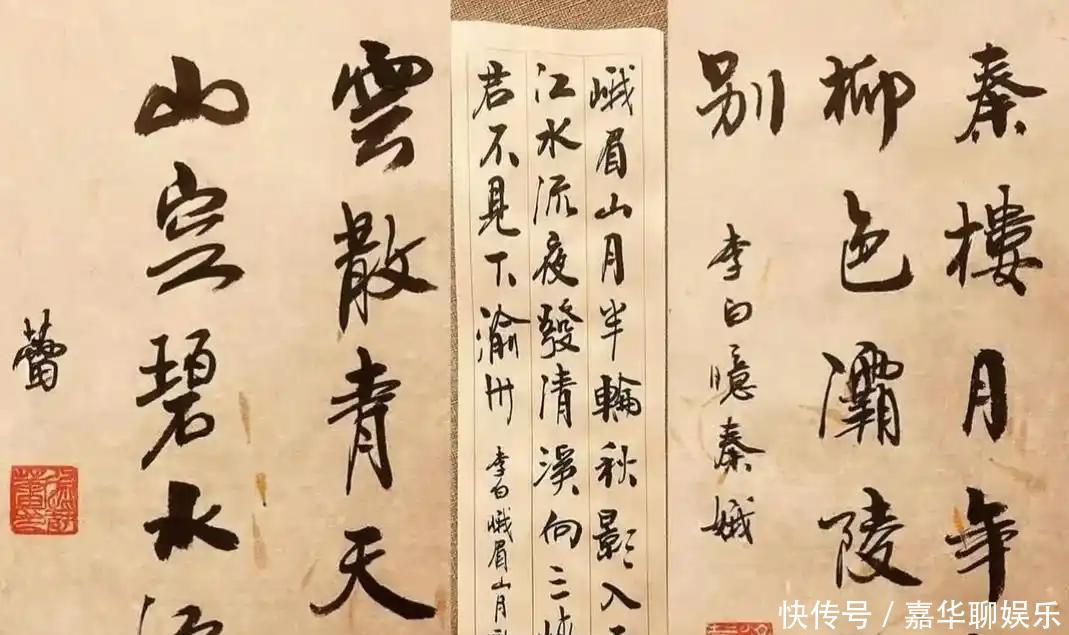 秦樓月年
柳色灞陵
别
李白憶秦娥
峨眉山月半輪秋影入
江水流夜發清溪向三
君不見下渝州
李白峨眉山月
雲散青天
山空碧水
蕾
快传号 / 嘉华聊娱乐